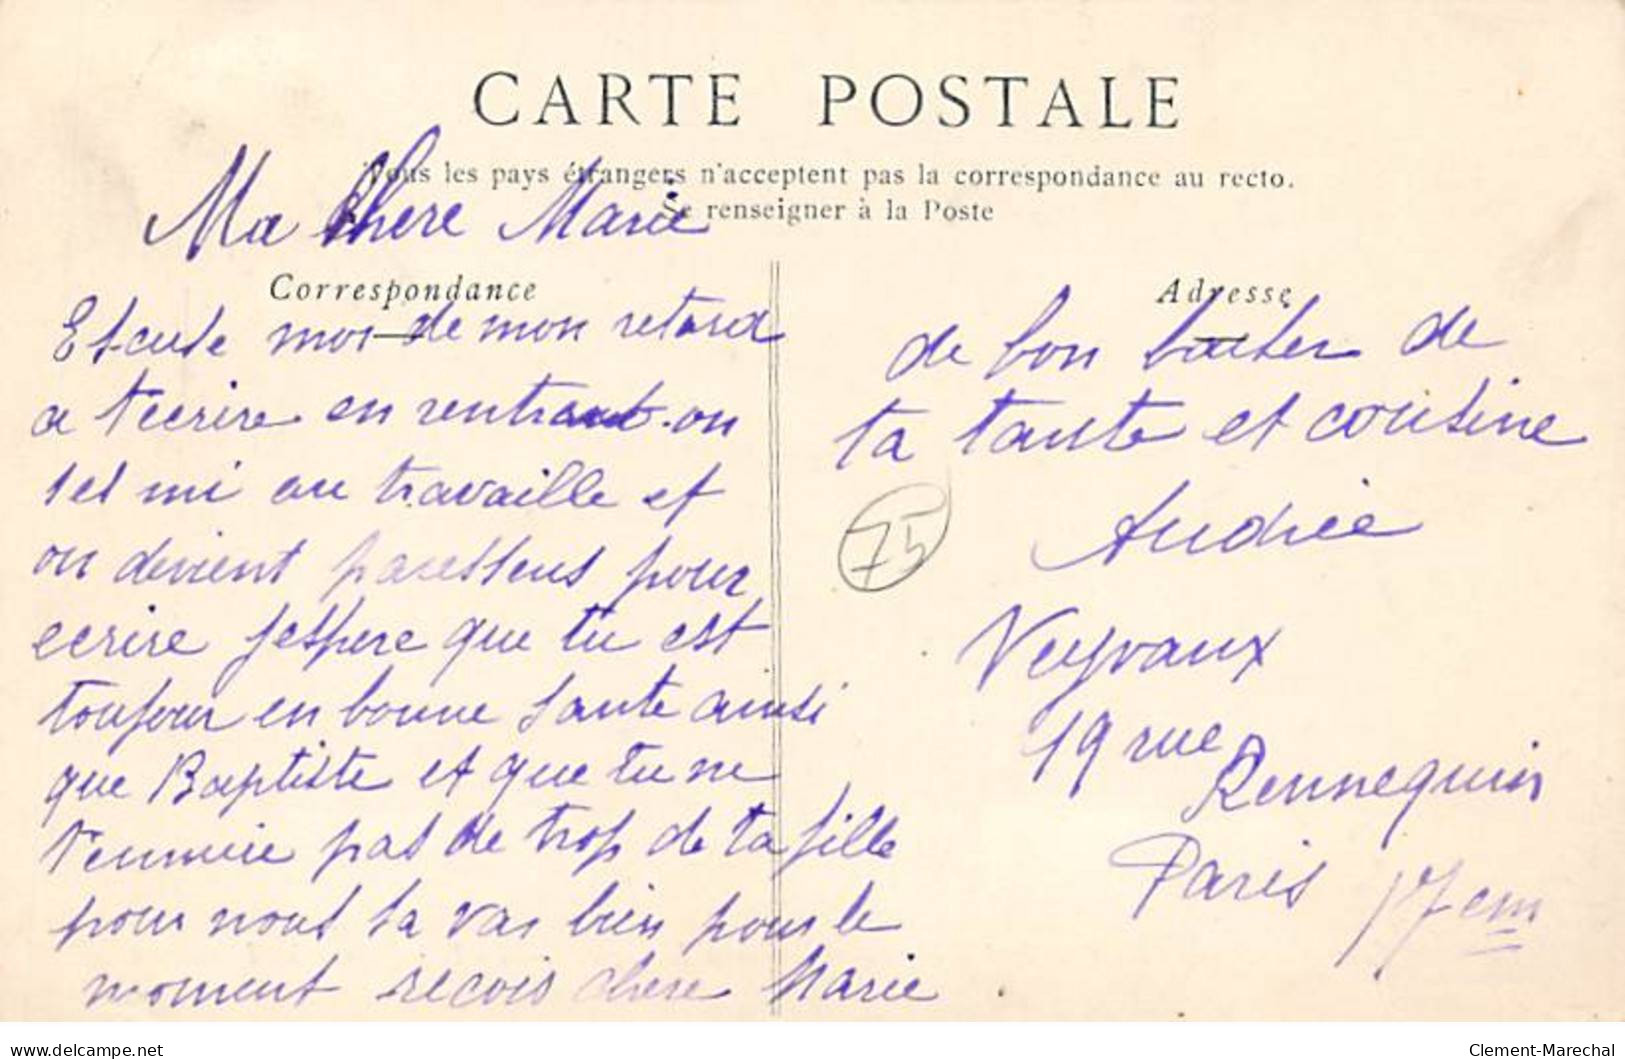 CARTE POSTALE
Tous les pays étrangers n'acceptent pas la correspondance au recto.
Se renseigner à la Poste
Ma chere Marie
Correspondance
Adresse
Excuse moi de mon retard
a tecrire en rentrant on
ses mi au travaille et
on devient paresseus pour
ecrire jespere que tu est
toujour en bonne sante ainsi
que Baptiste et que tu ne
t'ennuie pas de trop de ta fille
pour nous sa vas bien pour le
moment recois chere Marie
de bon baiser de
ta tante et cousine
Andrée
75
Veyvaux
19 rue
Rennequin
Paris 17em
www.delcampe.net
Clement-Marechal